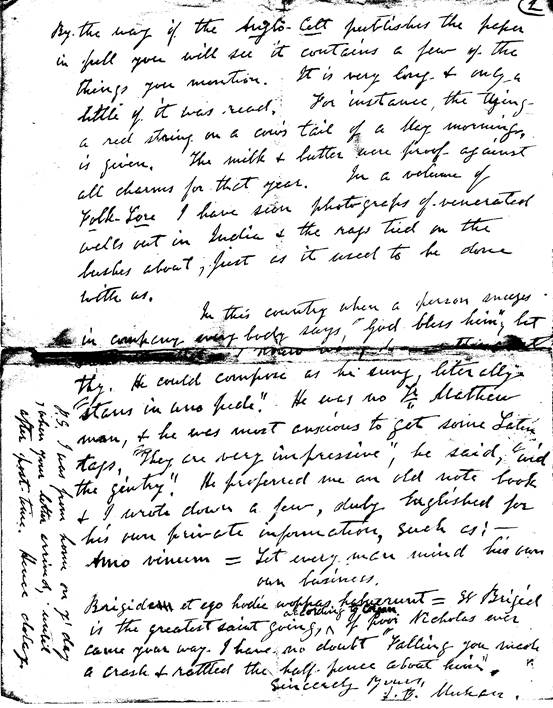 1
By the way if the Anglo-Celt publishes the paper
in full you will see it contains a few of the
things you mention. It is very long & only a
little of it was read. For instance, the tying
a red string on a cow's tail of a May morning,
is given. The milk & butter were proof against
all charms for that year. In a volume of
Folk-Lore I have seen photographs of venerated
wells out in India & the rags tied on the
bushes about, just as it used to be done
with us.
In this country when a person sneezes
in company every body says, "God bless him", let
thy. He could compose as he sung, literally
"stans in uno pede". He was no Fr Mathew
man, & he was most anxious to get some Latin
tags, "They are very impressive", he said, "wid
the gintry". He proferred me an old note book
& I wrote down a few, duly Englished for
his own private information, such as: —
Amo vinum = Let every man mind his own
own business.
Brigidam et ego hodie = St Brigid
is the greatest saint going, according to Colgan. If poor Nicholas ever
came your way. I have no doubt "Falling you made
a crash & rattled the half-pence about him".
Sincerely Yours,
P.S. I was from home on ye day
when your letter arrived, until
after post-time. Hence delay.